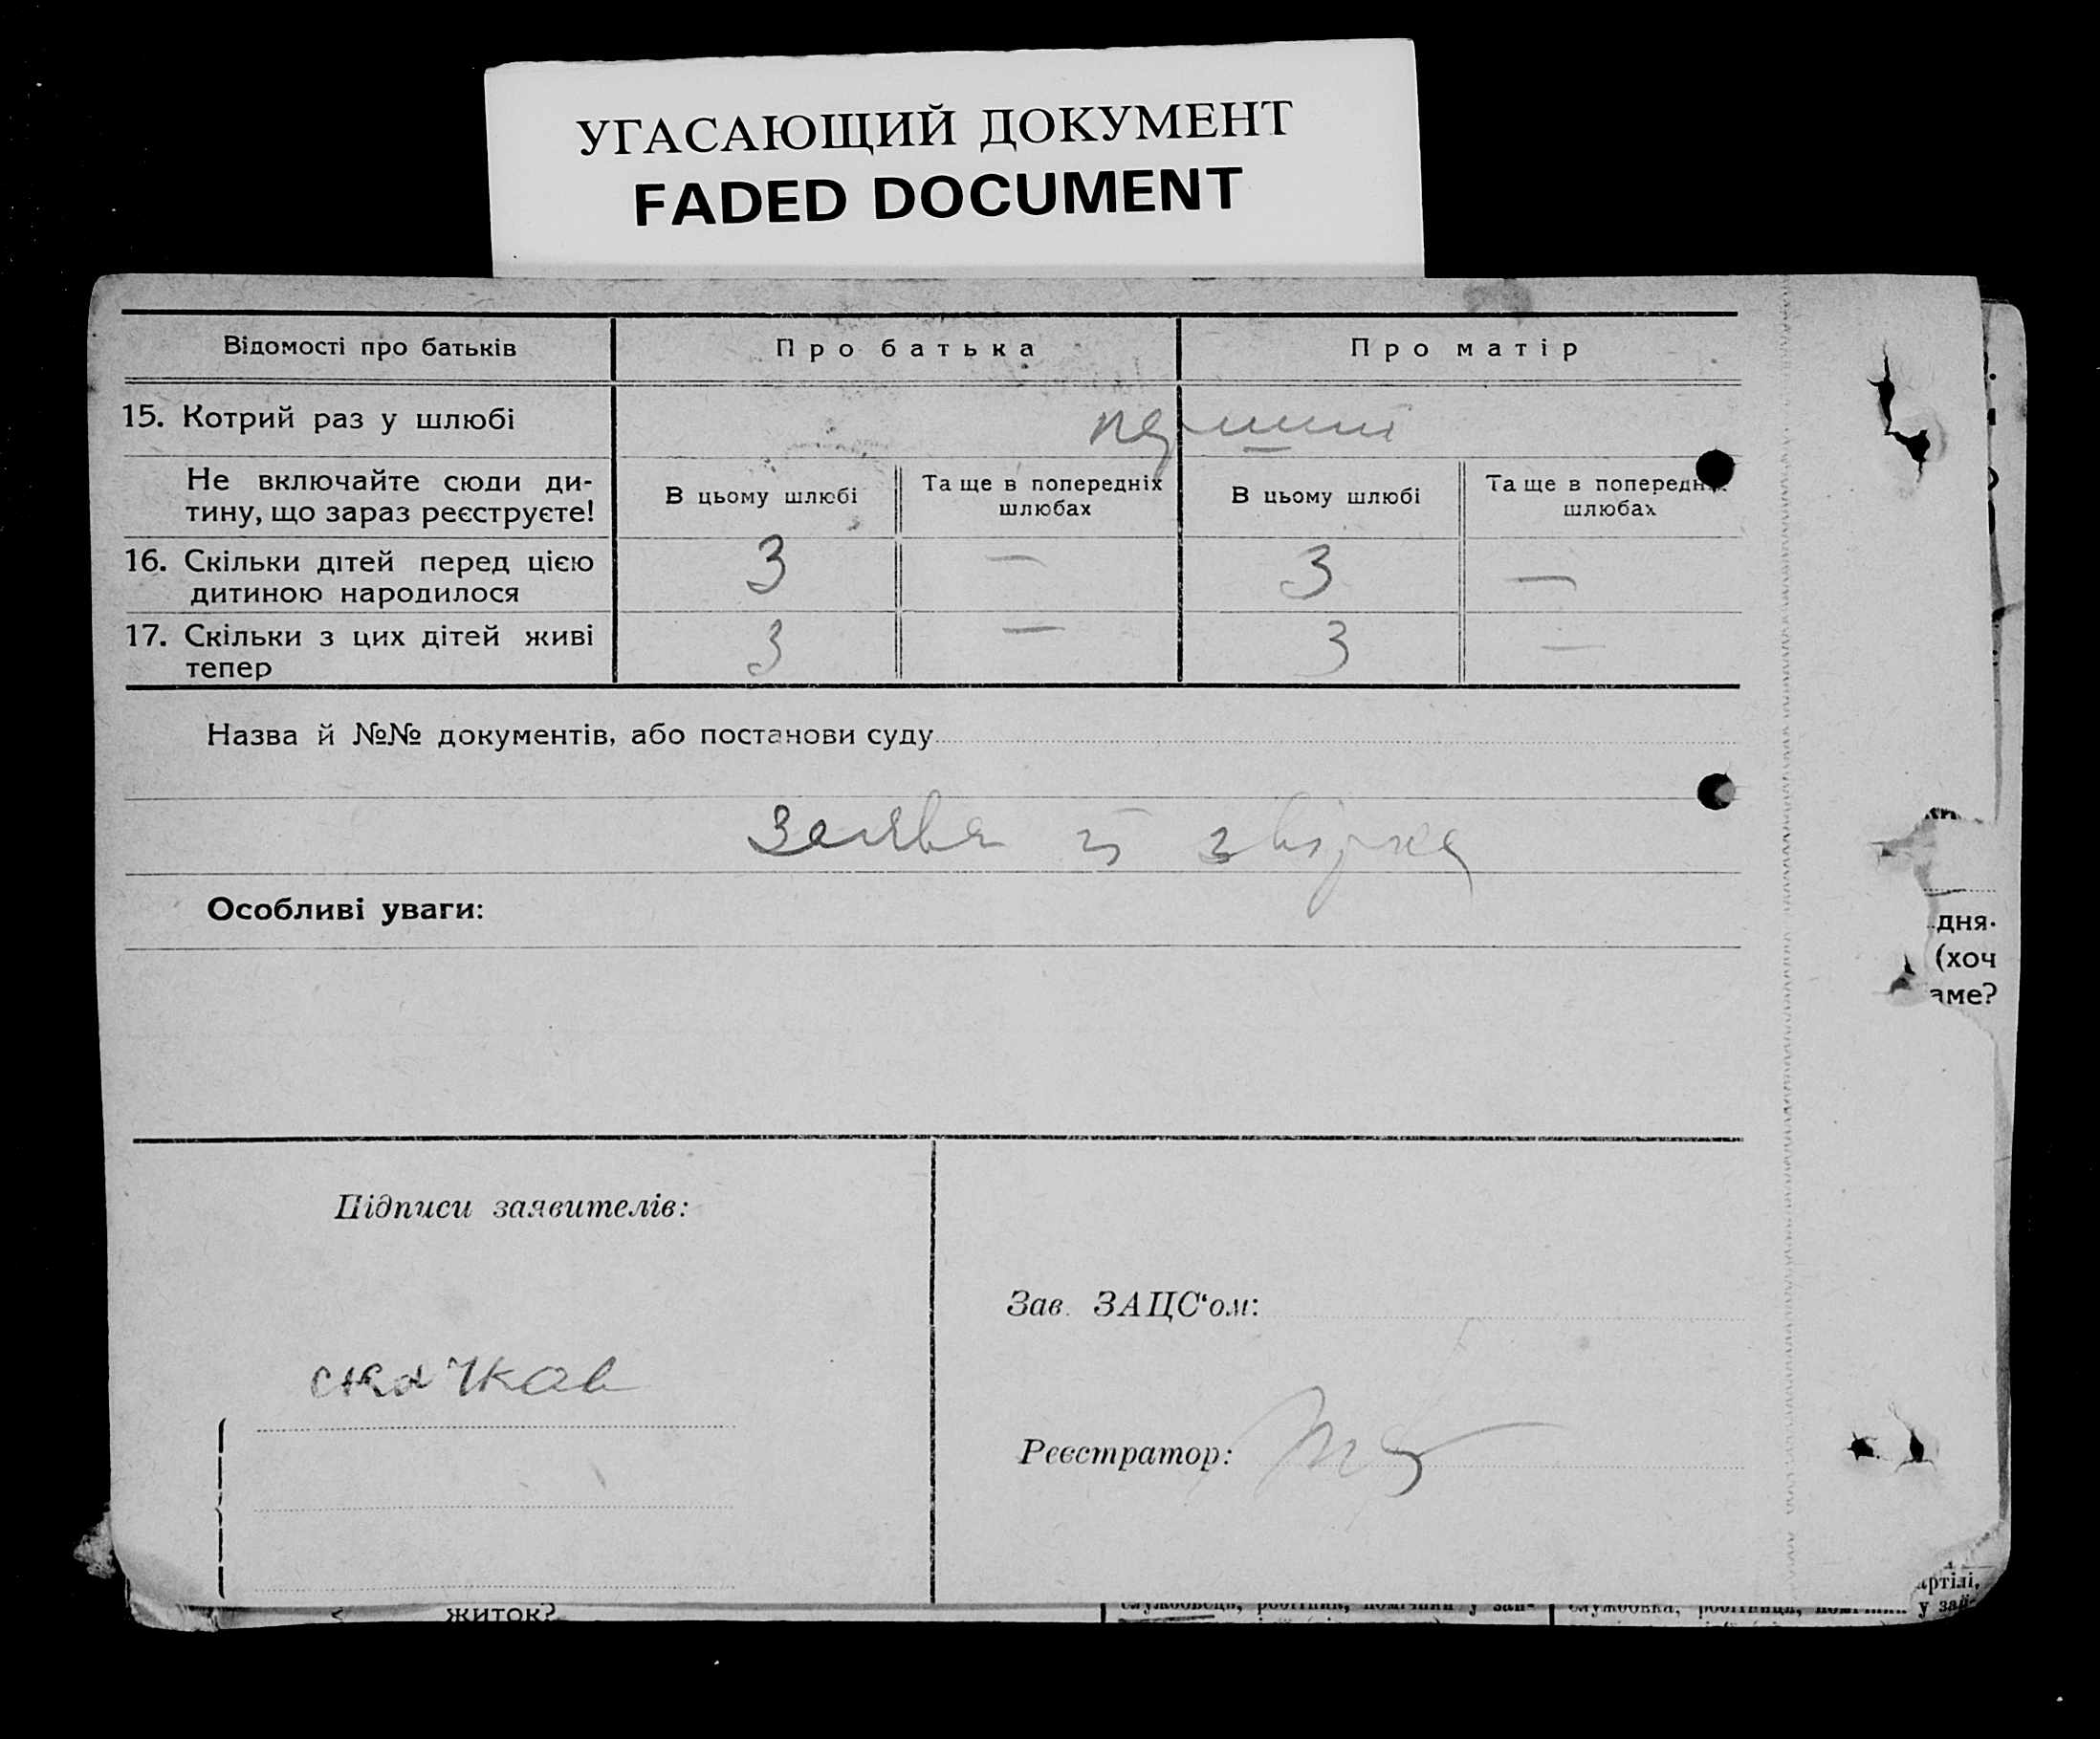 УГАСАЮЩИЙ ДОКУМЕНТ
FADED DOCUMENT
Відомості про батьків
Про батька
Про матір
15. Котрий раз у шлюбі
перший
Не включайте сюди ди-
тину, що зараз реєструєте!
В цьому шлюбі
Та ще в попередніх
шлюбах
В цьому шлюбі
Та ще в попередніх
шлюбах
16. Скільки дітей перед цією
дитиною народилося
3 — 3 —
17. Скільки з цих дітей живі
тепер
3 — 3 —
Назва й №№ документів, або постанови суду
Заява
Особливі уваги:
дня.
(хоч
аме?
Підписи заявителів:
Зав. ЗАЦС'ом:
скачков
Реєстратор:
артілі,
житок?
службовець, робітник, помічний у зай-
службовка, робітниця, у зай-